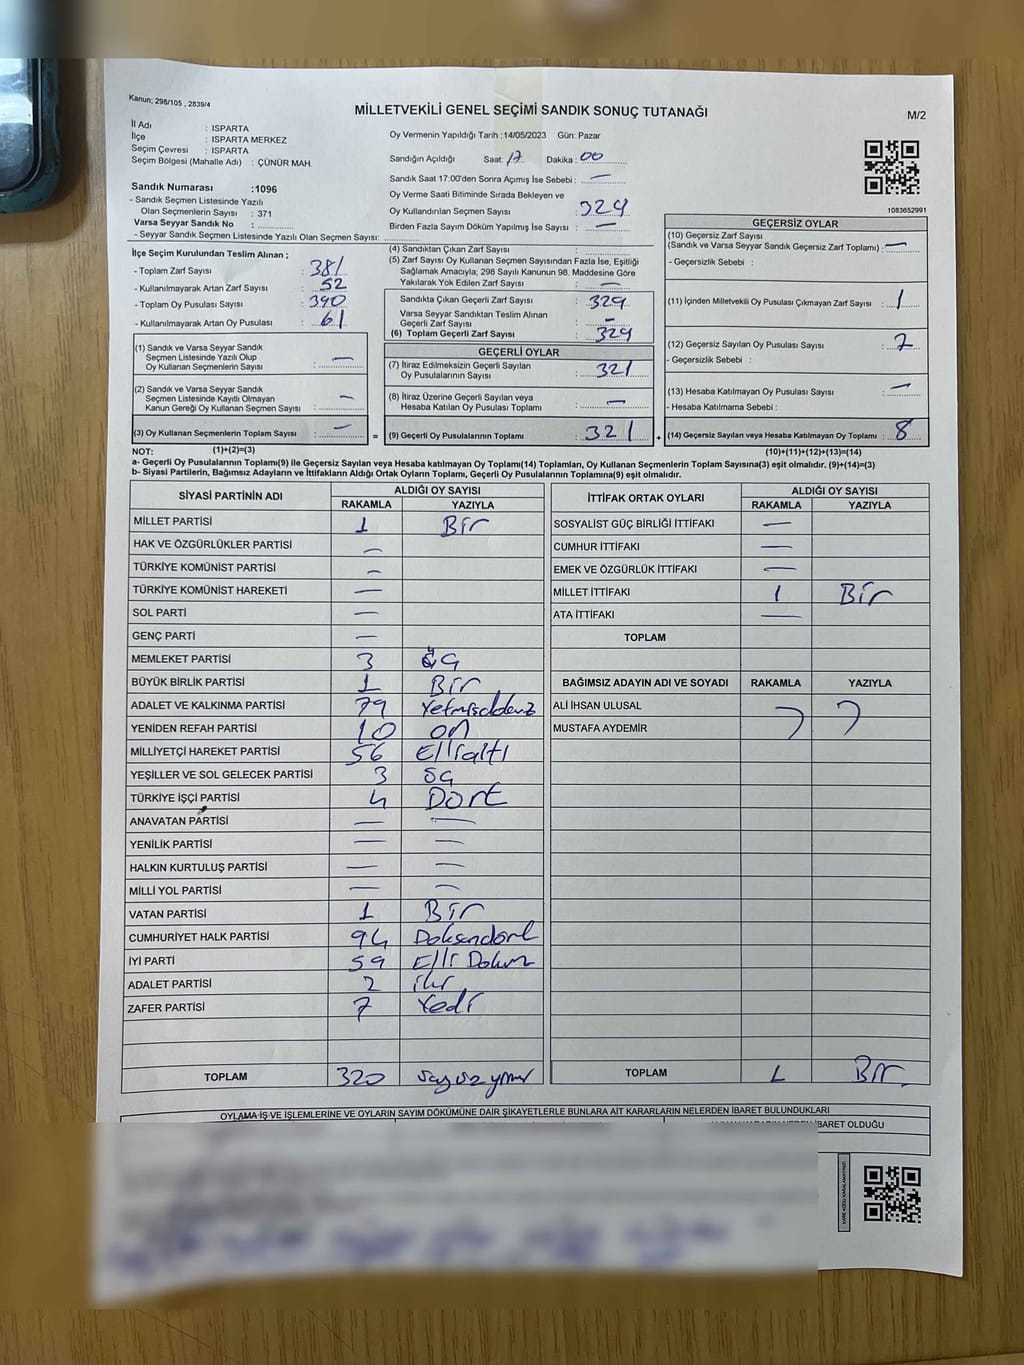 Kanun; 298/105 , 2839/4
MİLLETVEKİLİ GENEL SEÇİMİ SANDIK SONUÇ TUTANAĞI
M/2
İl Adı : ISPARTA
İlçe : ISPARTA MERKEZ
Seçim Çevresi : ISPARTA
Seçim Bölgesi (Mahalle Adı) : ÇÜNÜR MAH.
Sandık Numarası :1096
- Sandık Seçmen Listesinde Yazılı
Olan Seçmenlerin Sayısı : 371
Varsa Seyyar Sandık No :
- Seyyar Sandık Seçmen Listesinde Yazılı Olan Seçmen Sayısı:
Oy Vermenin Yapıldığı Tarih :14/05/2023 Gün: Pazar
Sandığın Açıldığı Saat: 17 Dakika : 00
Sandık Saat 17:00'den Sonra Açımış İse Sebebi : —
Oy Verme Saati Bitiminde Sırada Bekleyen ve
Oy Kullandırılan Seçmen Sayısı : 329
Birden Fazla Sayım Döküm Yapılmış İse Sayısı : —
1083652991
İlçe Seçim Kurulundan Teslim Alınan ;
- Toplam Zarf Sayısı : 381
- Kullanılmayarak Artan Zarf Sayısı : 52
- Toplam Oy Pusulası Sayısı : 390
- Kullanılmayarak Artan Oy Pusulası : 61
(1) Sandık ve Varsa Seyyar Sandık
Seçmen Listesinde Yazılı Olup
Oy Kullanan Seçmenlerin Sayısı : —
(2) Sandık ve Varsa Seyyar Sandık
Seçmen Listesinde Kayıtlı Olmayan
Kanun Gereği Oy Kullanan Seçmen Sayısı : —
(3) Oy Kullanan Seçmenlerin Toplam Sayısı : —
(1)+(2)=(3)
(4) Sandıktan Çıkan Zarf Sayısı :
(5) Zarf Sayısı Oy Kullanan Seçmen Sayısından Fazla İse, Eşitliği
Sağlamak Amacıyla; 298 Sayılı Kanunun 98. Maddesine Göre
Yakılarak Yok Edilen Zarf Sayısı : —
Sandıkta Çıkan Geçerli Zarf Sayısı : 329
Varsa Seyyar Sandıktan Teslim Alınan
Geçerli Zarf Sayısı : —
(6) Toplam Geçerli Zarf Sayısı : 329
GEÇERLİ OYLAR
(7) İtiraz Edilmeksizin Geçerli Sayılan
Oy Pusulalarının Sayısı : 321
(8) İtiraz Üzerine Geçerli Sayılan veya
Hesaba Katılan Oy Pusulası Toplamı : —
= (9) Geçerli Oy Pusulalarının Toplamı : 321 +
GEÇERSİZ OYLAR
(10) Geçersiz Zarf Sayısı
(Sandık ve Varsa Seyyar Sandık Geçersiz Zarf Toplamı) : —
- Geçersizlik Sebebi :
(11) İçinden Milletvekili Oy Pusulası Çıkmayan Zarf Sayısı : 1
(12) Geçersiz Sayılan Oy Pusulası Sayısı : 7
- Geçersizlik Sebebi :
(13) Hesaba Katılmayan Oy Pusulası Sayısı : —
- Hesaba Katılmama Sebebi :
(14) Geçersiz Sayılan veya Hesaba Katılmayan Oy Toplamı : 8
(10)+(11)+(12)+(13)=(14)
NOT:
a- Geçerli Oy Pusulalarının Toplamı(9) ile Geçersiz Sayılan veya Hesaba katılmayan Oy Toplamı(14) Toplamları, Oy Kullanan Seçmenlerin Toplam Sayısına(3) eşit olmalıdır. (9)+(14)=(3)
b- Siyasi Partilerin, Bağımsız Adayların ve İttifakların Aldığı Ortak Oyların Toplamı, Geçerli Oy Pusulalarının Toplamına(9) eşit olmalıdır.
SİYASİ PARTİNİN ADI ALDIĞI OY SAYISI
RAKAMLA YAZIYLA
MİLLET PARTİSİ 1 Bir
HAK VE ÖZGÜRLÜKLER PARTİSİ —
TÜRKİYE KOMÜNİST PARTİSİ —
TÜRKİYE KOMÜNİST HAREKETİ —
SOL PARTİ —
GENÇ PARTİ —
MEMLEKET PARTİSİ 3 üç
BÜYÜK BİRLİK PARTİSİ 1 Bir
ADALET VE KALKINMA PARTİSİ 79
YENİDEN REFAH PARTİSİ 10 on
MİLLİYETÇİ HAREKET PARTİSİ 56 Ellialtı
YEŞİLLER VE SOL GELECEK PARTİSİ 3
TÜRKİYE İŞÇİ PARTİSİ 4 Dört
ANAVATAN PARTİSİ — —
YENİLİK PARTİSİ — —
HALKIN KURTULUŞ PARTİSİ — —
MİLLİ YOL PARTİSİ — —
VATAN PARTİSİ 1 Bir
CUMHURİYET HALK PARTİSİ 94 Doksandört
İYİ PARTİ 59 Elli Dokuz
ADALET PARTİSİ 2 iki
ZAFER PARTİSİ 7 Yedi
TOPLAM 320
İTTİFAK ORTAK OYLARI ALDIĞI OY SAYISI
RAKAMLA YAZIYLA
SOSYALİST GÜÇ BİRLİĞİ İTTİFAKI —
CUMHUR İTTİFAKI —
EMEK VE ÖZGÜRLÜK İTTİFAKI —
MİLLET İTTİFAKI 1 Bir
ATA İTTİFAKI —
TOPLAM
BAĞIMSIZ ADAYIN ADI VE SOYADI RAKAMLA YAZIYLA
ALİ İHSAN ULUSAL
MUSTAFA AYDEMİR
TOPLAM 1 Bir
OYLAMA İŞ VE İŞLEMLERİNE VE OYLARIN SAYIM DÖKÜMÜNE DAİR ŞİKAYETLERLE BUNLARA AİT KARARLARIN NELERDEN İBARET BULUNDUKLARI
İBARET OLDUĞU